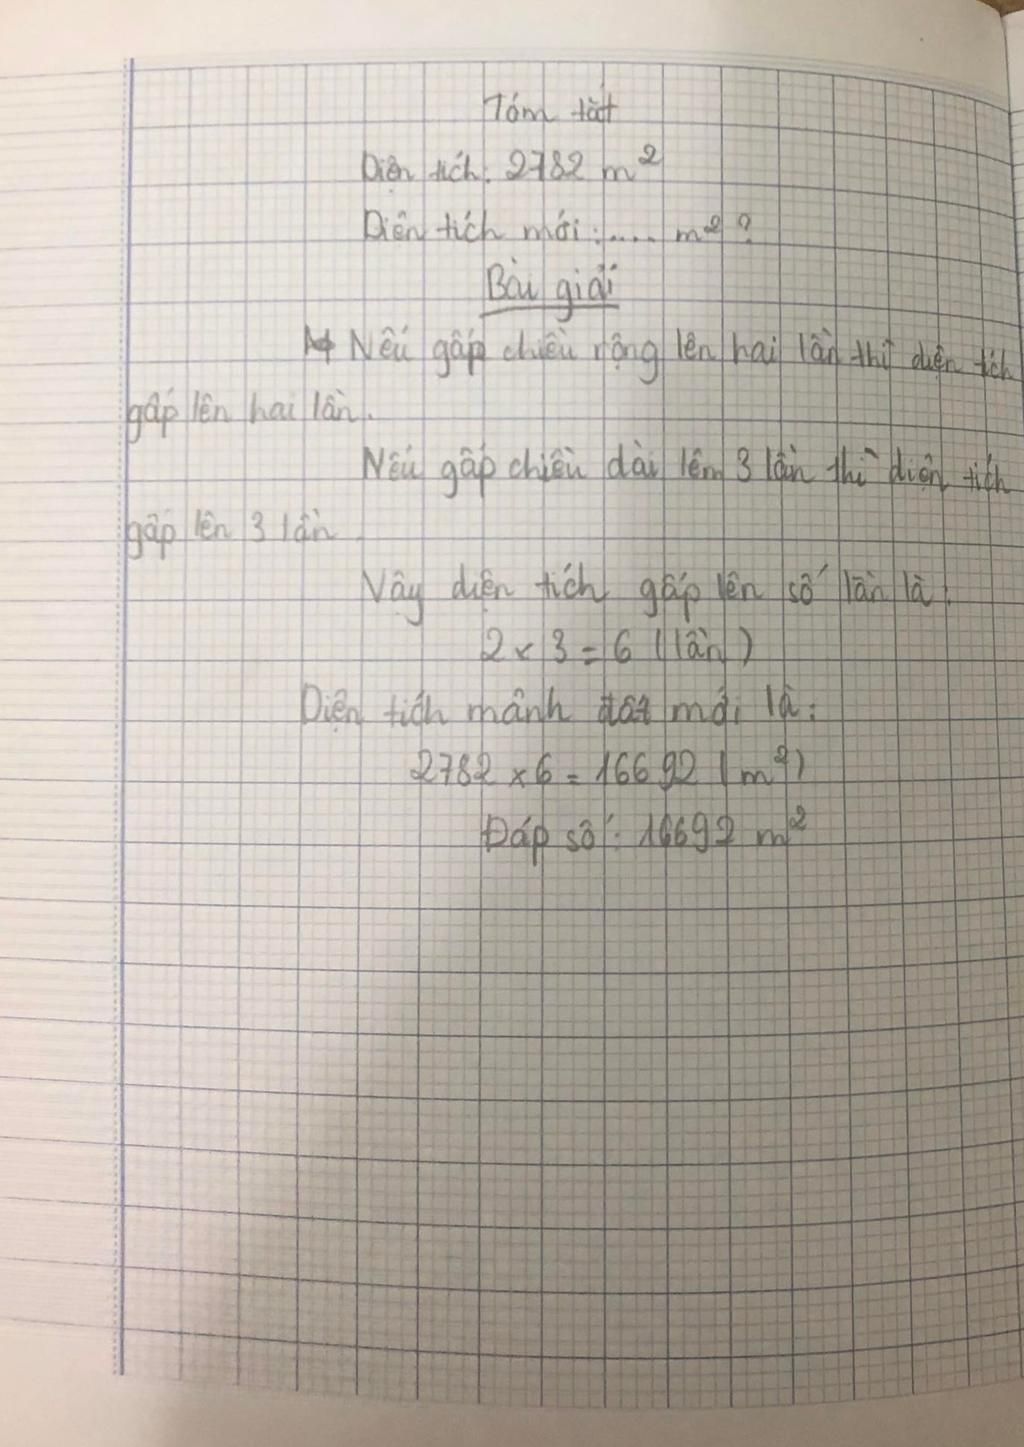 Tóm tắt
Diện tích: 2782 m²
Diện tích mới:.... m² ?
Bài giải
Nếu gấp chiều rộng lên hai lần thì diện tích
gấp lên hai lần.
Nếu gấp chiều dài lên 3 lần thì diện tích
gấp lên 3 lần
Vậy diện tích gấp lên số lần là:
2 × 3 = 6 (lần)
Diện tích mảnh đất mới là:
2782 × 6 = 16692 (m²)
Đáp số: 16692 m²